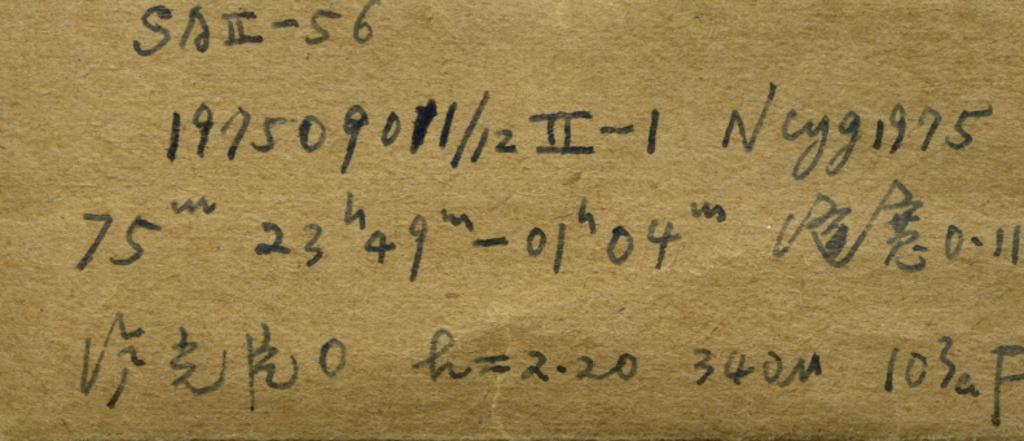 SA II-56
1975 09 011/12 II-1 N Cyg 1975
75ᵐ 23ʰ49ᵐ-01ʰ04ᵐ 缝宽 0.11
滤光片 0 h=2.20 340μ 103aF